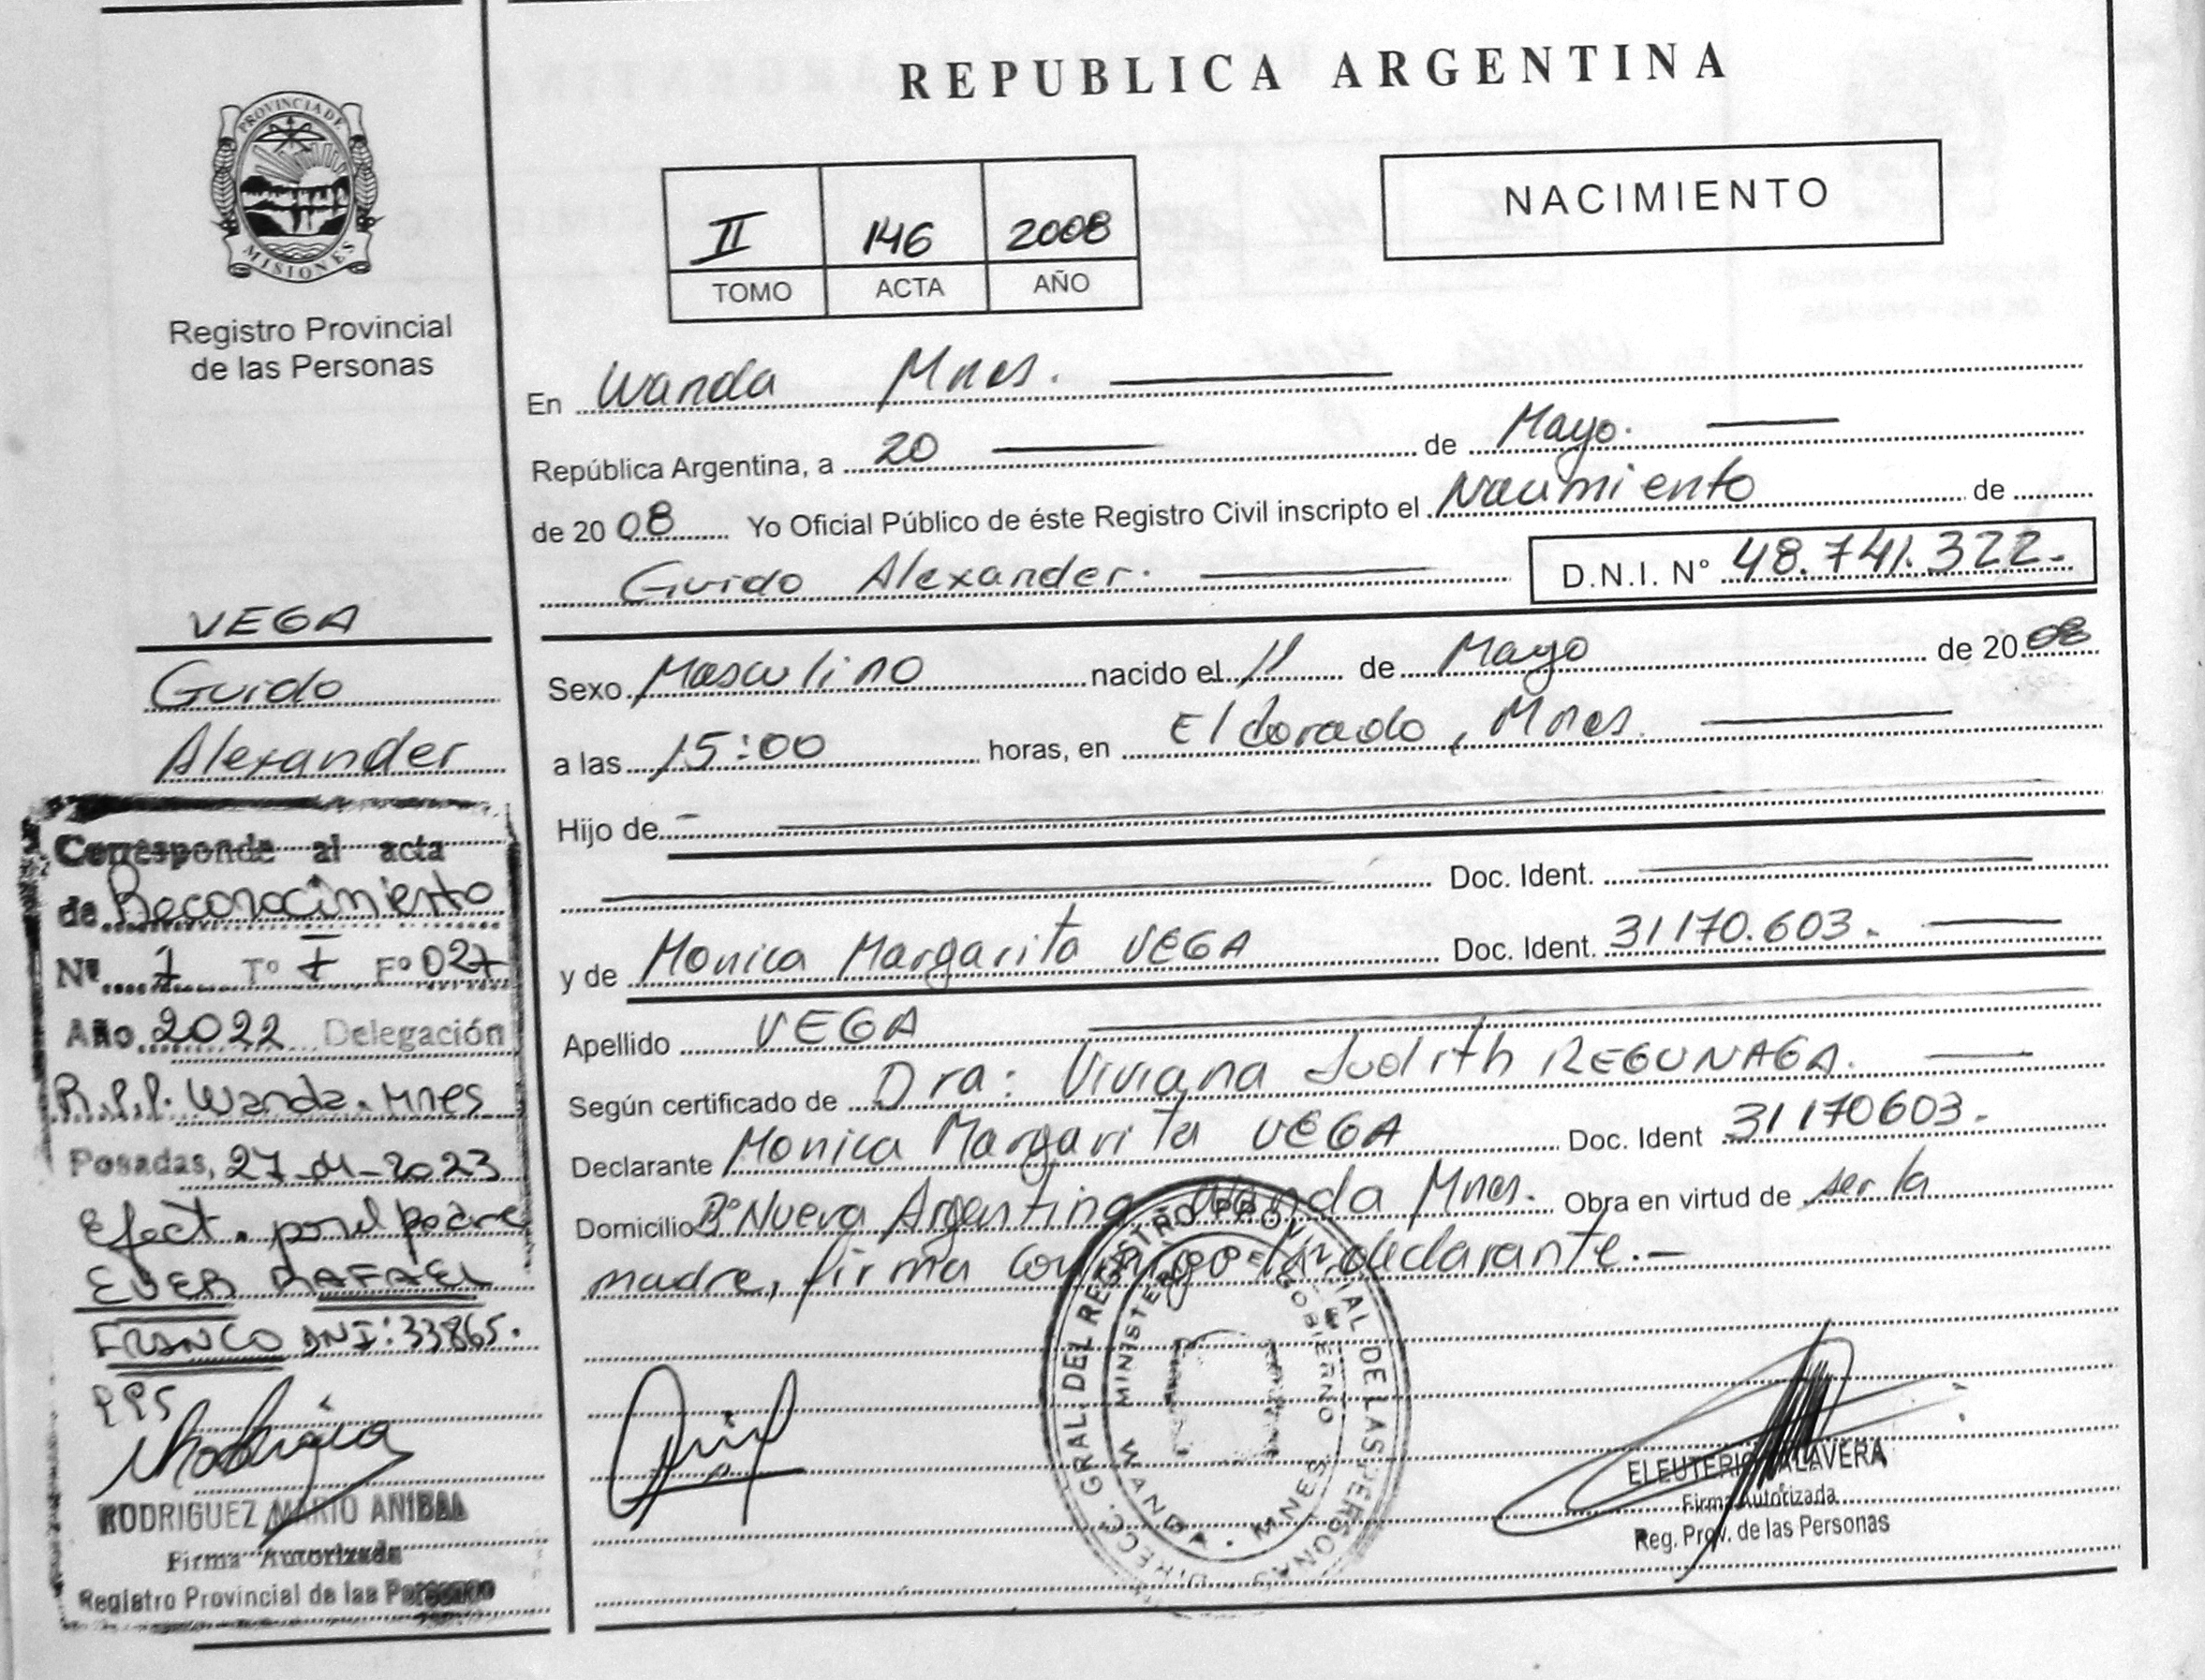 REPUBLICA ARGENTINA
PROVINCIA DE
MISIONES
Registro Provincial
de las Personas
II 146 2008
TOMO ACTA AÑO
NACIMIENTO
En Wanda Mnes.
República Argentina, a 20 de Mayo.
de 2008 Yo Oficial Público de éste Registro Civil inscripto el Nacimiento de
Guido Alexander. D.N.I. N° 48.741.322.
Sexo Masculino nacido el 11 de Mayo de 2008
a las 15:00 horas, en Eldorado, Mnes.
Hijo de
Doc. Ident.
y de Monica Margarita VEGA Doc. Ident. 31170.603.
Apellido VEGA
Según certificado de Dra: Viviana Judith REGUNAGA.
Declarante Monica Margarita VEGA Doc. Ident 31170603.
Domicilio B° Nueva Argentina Wanda Mnes. Obra en virtud de ser la
madre, firma conmigo la declarante.-
VEGA
Guido
Alexander
Corresponde al acta
de Reconocimiento
Nº 1 Tº I Fº 027
Año 2022 Delegación
R.P.P. Wanda. Mnes
Posadas, 27-01-2023
Efect. por el padre
EVER RAFAEL
FRANCO DNI: 33865.
995
RODRIGUEZ MARIO ANIBAL
Firma Autorizada
Registro Provincial de las Personas
DIRECC. GRAL. DEL REGISTRO PROVINCIAL DE LAS PERSONAS
MINISTERIO DE GOBIERNO
WANDA - MNES
ELEUTERIO TALAVERA
Firma Autorizada
Reg. Prov. de las Personas